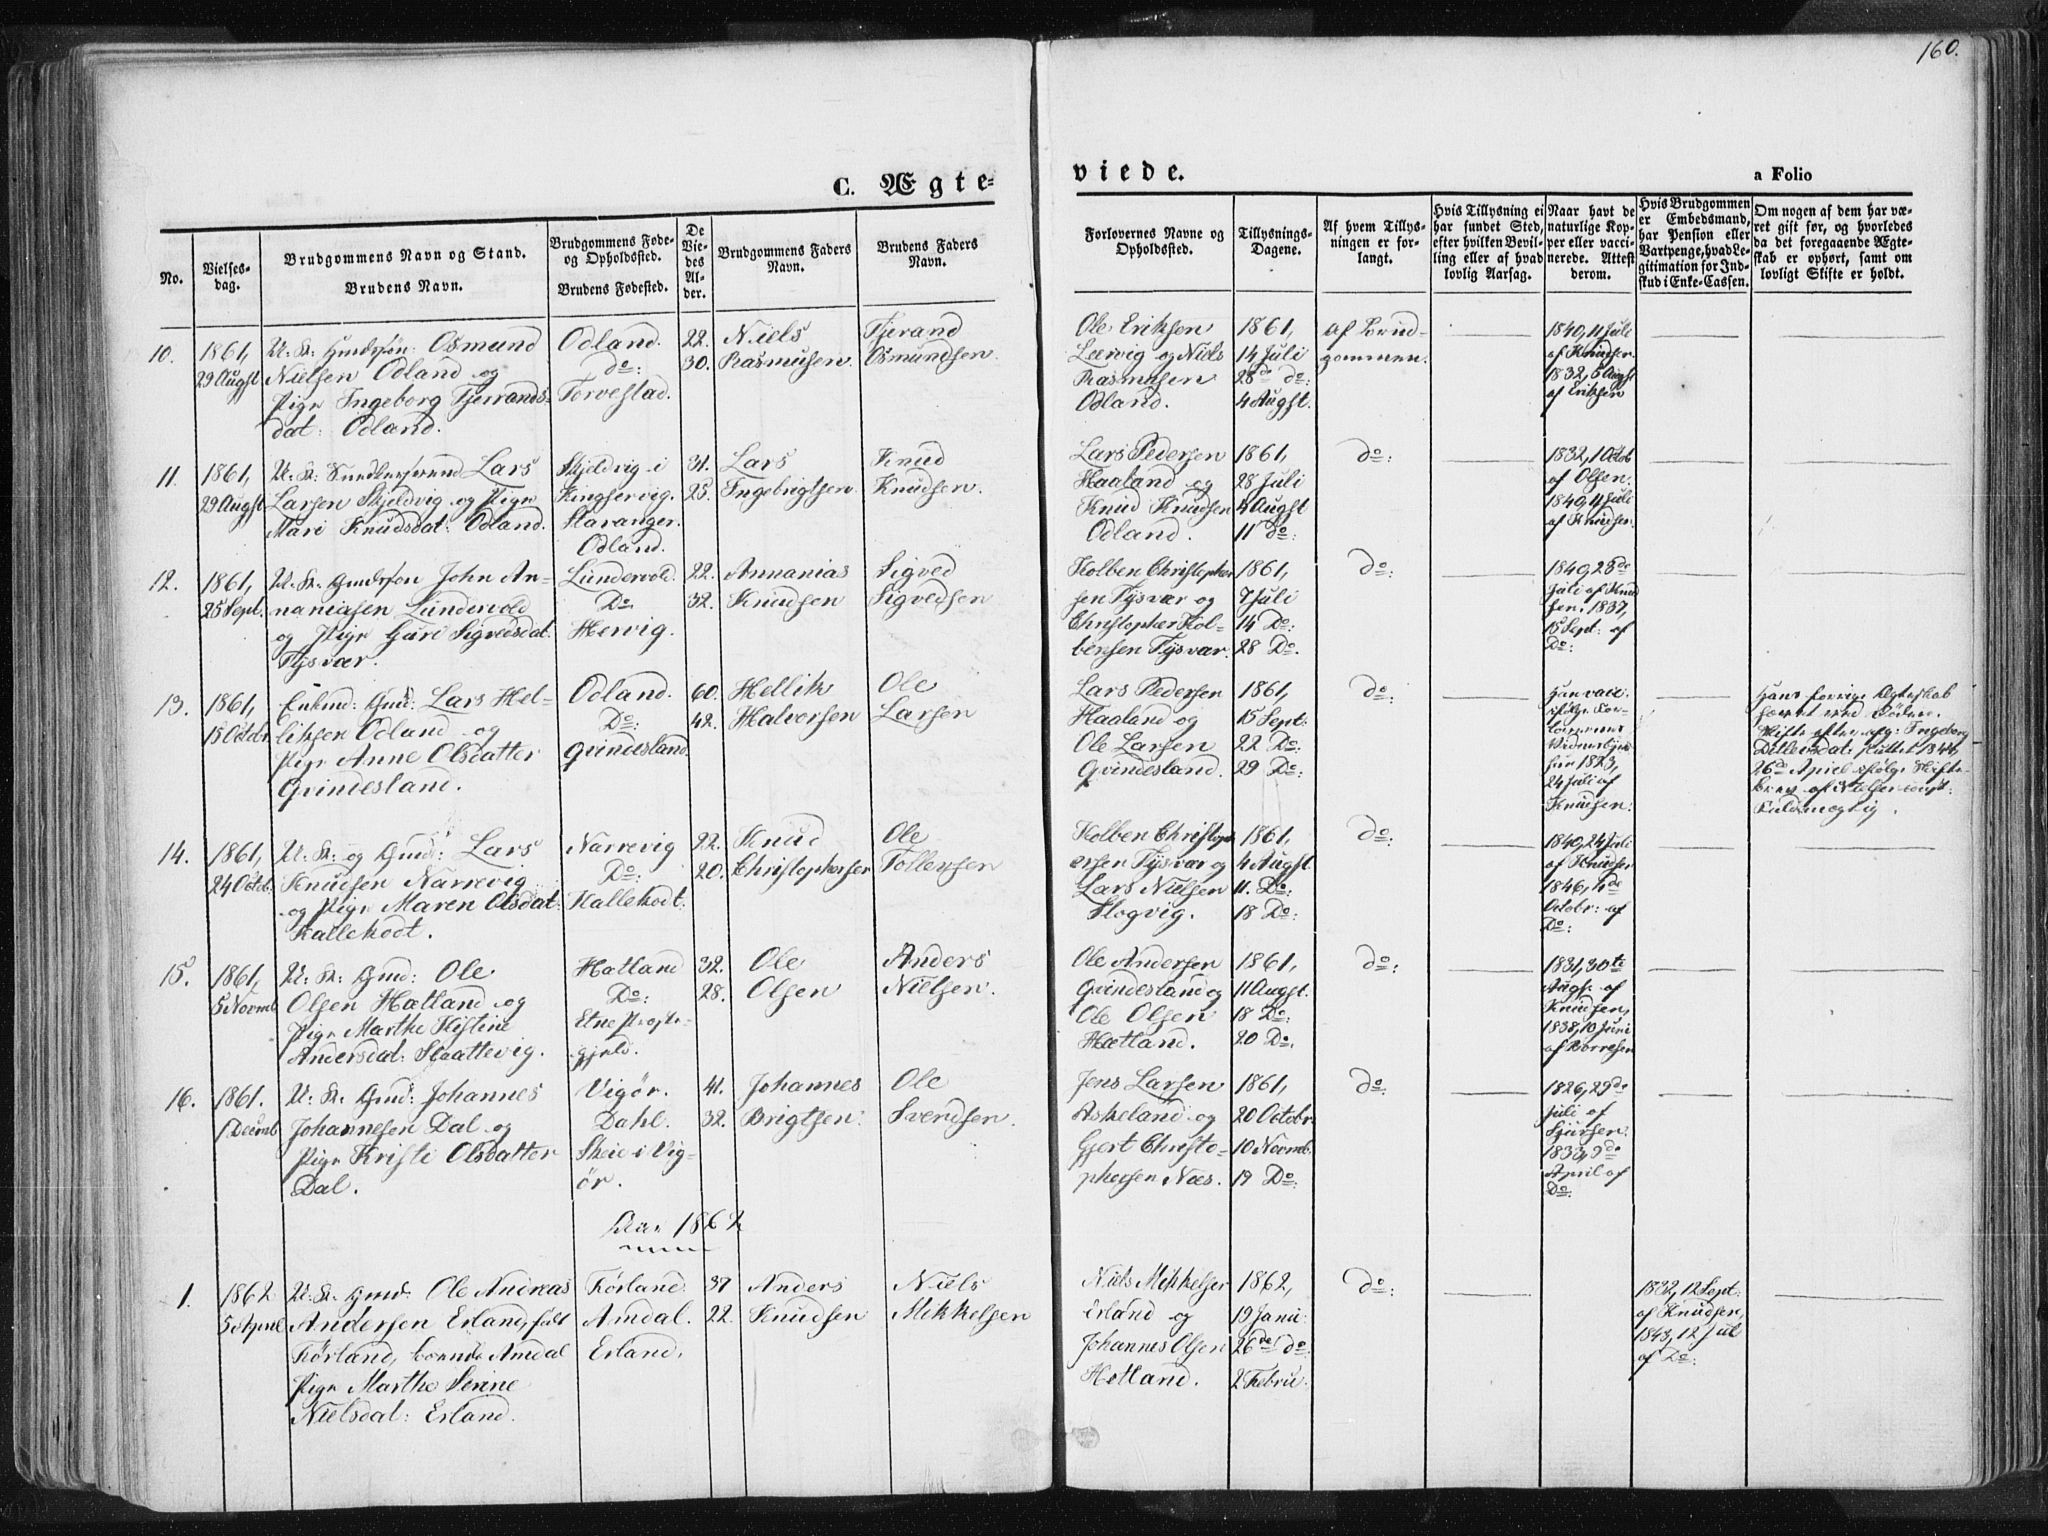 160.
C. Ægte-
viede.
a Folio
No.
Vielses-
dag.
Brudgommens Navn og Stand.
Brudens Navn.
Brudgommens Føde-
og Opholdsted.
Brudens Fødested.
De
Vie-
des
Al-
der.
Brudgommens Faders
Navn.
Brudens Faders
Navn.
Forlovernes Navne og
Opholdsted.
Tillysnings-
Dagene.
Af hvem Tillys-
ningen er for-
langt.
Hvis Tillysning ei
har fundet Sted,
efter hvilken Bevil-
ling eller af hvad
lovlig Aarsag.
Naar havt de
naturlige Kop-
per eller vacci-
nerede. Attest
derom.
Hvis Brudgommen
er Embedsmand,
har Pension eller
Vartpenge, hvad Le-
gitimation for Ind-
skud i Enke-Cassen.
Om nogen af dem har væ-
ret gift før, og hvorledes
da det foregaaende Ægte-
skab er ophørt, samt om
lovligt Skifte er holdt.
10.
1861,
29 Augst
U. K. Gaardsøn: Osmund
Nielsen Odland og
Pige Ingeborg Tjerands-
dat: Odland.
Odland.
do:
Torvestad.
22.
30.
Niels
Rasmusen
Tjerand
Osmundsen.
Ole Eriksen
Leervig og Niels
Rasmusen
Odland.
1861,
14 Juli
28de do:
4 Augst.
af Brud-
gommen.
1840, 11 Juli
af Knudsen
1832, 5 Augst
af Eriksen
11.
1861,
29 Augst
U. K. Lars
Larsen Skjeldvig og Pige
Mari Knudsdat: Odland.
Skjeldvig i
Kingservig.
Stavanger.
Odland.
31.
25.
Lars
Ingebrigtsen
Knud
Knudsen.
Lars Pedersen
Haaland og
Knud Knudsen
Odland.
1861,
28 Juli
4 Augst
11 do:
do:
1832, 1 Octob
af Olsen.
1840, 11 Juli
af Knudsen.
12.
1861,
25 Sept.
U. K. Gaardsøn John An-
naniassen Lundervold
og Pige Guri Sigvedsdat:
Tysvær.
Lundervold.
Do.
Hervig.
22.
32.
Annanias
Knudsen
Sigved
Sigvedsen
Kolben Christopher
sen Tysvær og
Christopher Kol-
bensen Tysvær.
1861,
7 Juli
14 Do:
28 Do.
do:
1840, 28de
Juli af Knud
sen. 1837,
15 Sept: af
Do:
13.
1861,
15 Octobr
Enkmd: Gmd: Lars Hel-
liksen Odland og
Pige Anne Olsdatter
Qvindesland.
Odland.
Do:
Qvindesland.
60.
42.
Hellik
Halvorsen
Ole
Larsen
Lars Pedersen
Haaland og
Ole Larsen
Qvindesland.
1861,
15 Sept:
22 Do:
29 Do:
do:
Han vacc.
ifølge For-
lovernes
Vidnesbyrd
hun 1823,
24 Juli af
Knudsen:
Hans forrige Ægteskab
hævet ved Døden.
Skifte efter afg: Ingeborg
Detlevsdat: sluttet 1844,
26de April ifølge Skifte-
brev af Nielsen const:
Fuldmægtig.
14.
1861,
24 Octob.
U. K. og Gmd: Lars
Knudsen Narrevig
og Pige Maren Olsdat:
Kallekodt.
Narrevig
Do:
Kallekodt:
22.
20.
Knud
Christophersen
Ole
Tollevsen
Kolben Christoph
ersen Tysvær og
Lars Nielsen
Slogvig.
1861,
4 Augst
11. Do:
18 Do:
do:
1840, 24 Juli
af Knudsen
1846, 4de
Octobr: af
Do:
15.
1861,
5 Novmb
U. K: Gmd: Ole
Olsen Hatland og
Pige Marthe Kistine
Andersdat: Slaattevig.
Hatland
Do:
Etne Præste-
gjeld.
32.
28.
Ole
Olsen
Anders
Nielsen.
Ole Andersen
Qvindesland og
Ole Olsen
Hetland.
1861,
11 Augst.
18 Do:
20 Do.
do:
1831, 30te
Augs. af
Knudsen,
1838, 10 Juni
af Borresen
16.
1861.
1 Decmb
U. K. Gmd: Johannes
Johannesen Dal og
Pige Kristi Olsdatter
Dal.
Vigør.
Dahl.
Skeie i Vig-
ør.
41.
32.
Johannes
Brigtsen.
Ole
Svendsen.
Jens Larsen
Askeland og
Gjert Christo-
phersen Næs.
1861,
20 Octobr
10 Novmb.
19 Do:
do
1826, 29de
Juli af
Sjursen.
1833, 9de
April af
Do:
Aar 1862
1.
1862
5 April
U. K. Gmd: Ole Andreas
Andersen Erland, født
Førland, boende Amdal
Pige Marthe Serine
Nielsdat: Erland.
Førland.
Amdal.
Erland.
37
22.
Anders
Knudsen
Niels
Mikkelsen
Niels Mikkelsen
Erland og
Johannes Olsen
Hetland.
1862,
19 Janu:
26de do:
2 Febru:
do:
1832, 12 Sept:
af Knudsen,
1843, 12 Jul
af Do: